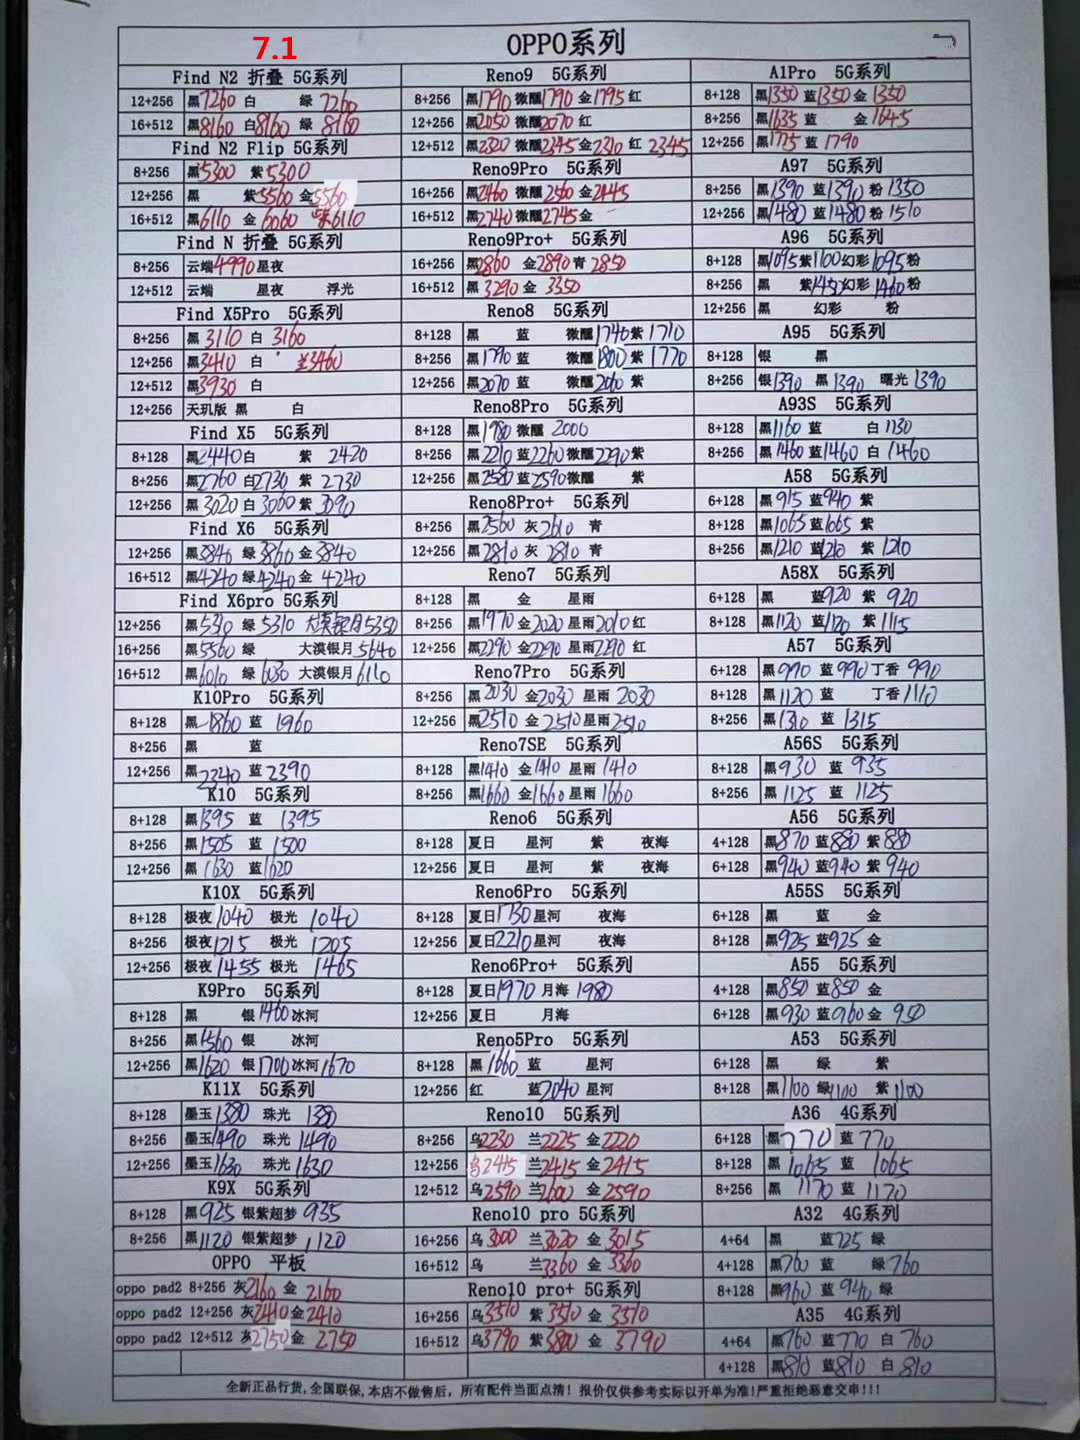 7.1
OPPO系列
Find N2 折叠 5G系列
12+256 黑7260 白 绿 7260
16+512 黑8160 白8160 绿 8160
Find N2 Flip 5G系列
8+256 黑5300 紫5300
12+256 黑 紫5560 金5560
16+512 黑6110 金 6060 紫6110
Find N 折叠 5G系列
8+256 云端4990星夜
12+512 云端 星夜 浮光
Find X5Pro 5G系列
8+256 黑 3110 白 3160
12+256 黑3410 白 3460
12+512 黑3930 白
12+256 天玑版 黑 白
Find X5 5G系列
8+128 黑2440白 紫 2420
8+256 黑2760 白2730 紫 2730
12+256 黑 3020 白3060 紫 3090
Find X6 5G系列
12+256 黑3840 绿 3860 金 3840
16+512 黑4240 绿4240 金 4240
Find X6pro 5G系列
12+256 黑5310 绿 5310 大漠银月5350
16+256 黑5560 绿 大漠银月5640
16+512 黑6010 绿 6030 大漠银月6110
K10Pro 5G系列
8+128 黑 1860 蓝 1960
8+256 黑 蓝
12+256 黑2340 蓝 2390
K10 5G系列
8+128 黑1395 蓝 1395
8+256 黑1505 蓝 1500
12+256 黑 1630 蓝1620
K10X 5G系列
8+128 极夜1040 极光 1040
8+256 极夜1215 极光 1205
12+256 极夜1455 极光 1465
K9Pro 5G系列
8+128 黑 银1460冰河
8+256 黑1560 银 冰河
12+256 黑1620 银1700冰河1670
K11X 5G系列
8+128 墨玉1380 珠光 1380
8+256 墨玉1490 珠光 1490
12+256 墨玉1630 珠光 1630
K9X 5G系列
8+128 黑925 银紫超梦 935
8+256 黑1120 银紫超梦 1120
OPPO 平板
oppo pad2 8+256 灰2160 金 2160
oppo pad2 12+256 灰2410金2410
oppo pad2 12+512 灰2750金 2750
Reno9 5G系列
8+256 黑1790微醺1790 金1795红
12+256 黑2050微醺2070 红
12+512 黑2320微醺2345金2310 红 2345
Reno9Pro 5G系列
16+256 黑2460 微醺2560 金2445
16+512 黑2740微醺2745金
Reno9Pro+ 5G系列
16+256 黑2860 金2890青 2850
16+512 黑 3290金 3350
Reno8 5G系列
8+128 黑 蓝 微醺1740紫1710
8+256 黑1790 蓝 微醺1800紫 1770
12+256 黑2070 蓝 微醺2060 紫
Reno8Pro 5G系列
8+128 黑1980微醺 2000
8+256 黑2210蓝2260微醺2290紫
12+256 黑2580蓝2590微醺 紫
Reno8Pro+ 5G系列
8+256 黑2560 灰2610 青
12+256 黑2810灰 2810 青
Reno7 5G系列
8+128 黑 金 星雨
8+256 黑1970金2020星雨2010红
12+256 黑2290金2290星雨2290 红
Reno7Pro 5G系列
8+256 黑2030 金2030星雨 2030
12+256 黑2510 金 2510星雨2510
Reno7SE 5G系列
8+128 黑1410 金1410 星雨 1410
8+256 黑1660 金1660星雨 1660
Reno6 5G系列
8+128 夏日 星河 紫 夜海
12+256 夏日 星河 紫 夜海
Reno6Pro 5G系列
8+128 夏日1730星河 夜海
12+256 夏日2210星河 夜海
Reno6Pro+ 5G系列
8+128 夏日1970 月海 1980
12+256 夏日 月海
Reno5Pro 5G系列
8+128 黑 1660 蓝 星河
12+256 红 蓝2040 星河
Reno10 5G系列
8+256 乌2230 兰2225 金2220
12+256 乌2415 兰2415 金2415
12+512 乌2590 兰2600 金2590
Reno10 pro 5G系列
16+256 乌 3000 兰3020 金 3015
16+512 乌 兰3360 金 3360
Reno10 pro+ 5G系列
16+256 乌3510 紫 3510 金 3510
16+512 乌3790 紫 3800 金 3790
A1Pro 5G系列
8+128 黑1350 蓝1350金 1350
8+256 黑1635 蓝 金1645
12+256 黑1775 蓝 1790
A97 5G系列
8+256 黑1390 蓝1390粉 1350
12+256 黑1480 蓝1480粉 1510
A96 5G系列
8+128 黑1095紫1100幻彩1095粉
8+256 黑 紫1450幻彩1460粉
12+256 黑 幻彩 粉
A95 5G系列
8+128 银 黑
8+256 银1390 黑1390 曙光 1390
A93S 5G系列
8+128 黑1160 蓝 白 1130
8+256 黑1460蓝1460 白 1460
A58 5G系列
6+128 黑 915 蓝940 紫
8+128 黑1065蓝1065 紫
8+256 黑1210 蓝1210 紫 1210
A58X 5G系列
6+128 黑 蓝920 紫 920
8+128 黑1120 蓝1120 紫 1115
A57 5G系列
6+128 黑990 蓝 990丁香 990
8+128 黑1120 蓝 丁香 1110
8+256 黑1310 蓝 1315
A56S 5G系列
8+128 黑930 蓝 935
8+256 黑 1125 蓝 1125
A56 5G系列
4+128 黑870 蓝880 紫 880
6+128 黑940 蓝940 紫 940
A55S 5G系列
6+128 黑 蓝 金
8+128 黑925 蓝925 金
A55 5G系列
4+128 黑850 蓝850 金
6+128 黑930 蓝960金 950
A53 5G系列
6+128 黑 绿 紫
8+128 黑1100 绿1100 紫 1100
A36 4G系列
6+128 黑770 蓝 770
8+128 黑 1065 蓝 1065
8+256 黑 1170 蓝 1170
A32 4G系列
4+64 黑 蓝725 绿
4+128 黑760 蓝 绿760
8+128 黑960 蓝 940 绿
A35 4G系列
4+64 黑760 蓝 770 白 760
4+128 黑810 蓝810 白 810
全新正品行货,全国联保,本店不做售后，所有配件当面点清！报价仅供参考实际以开单为准!严重拒绝恶意交串!!!